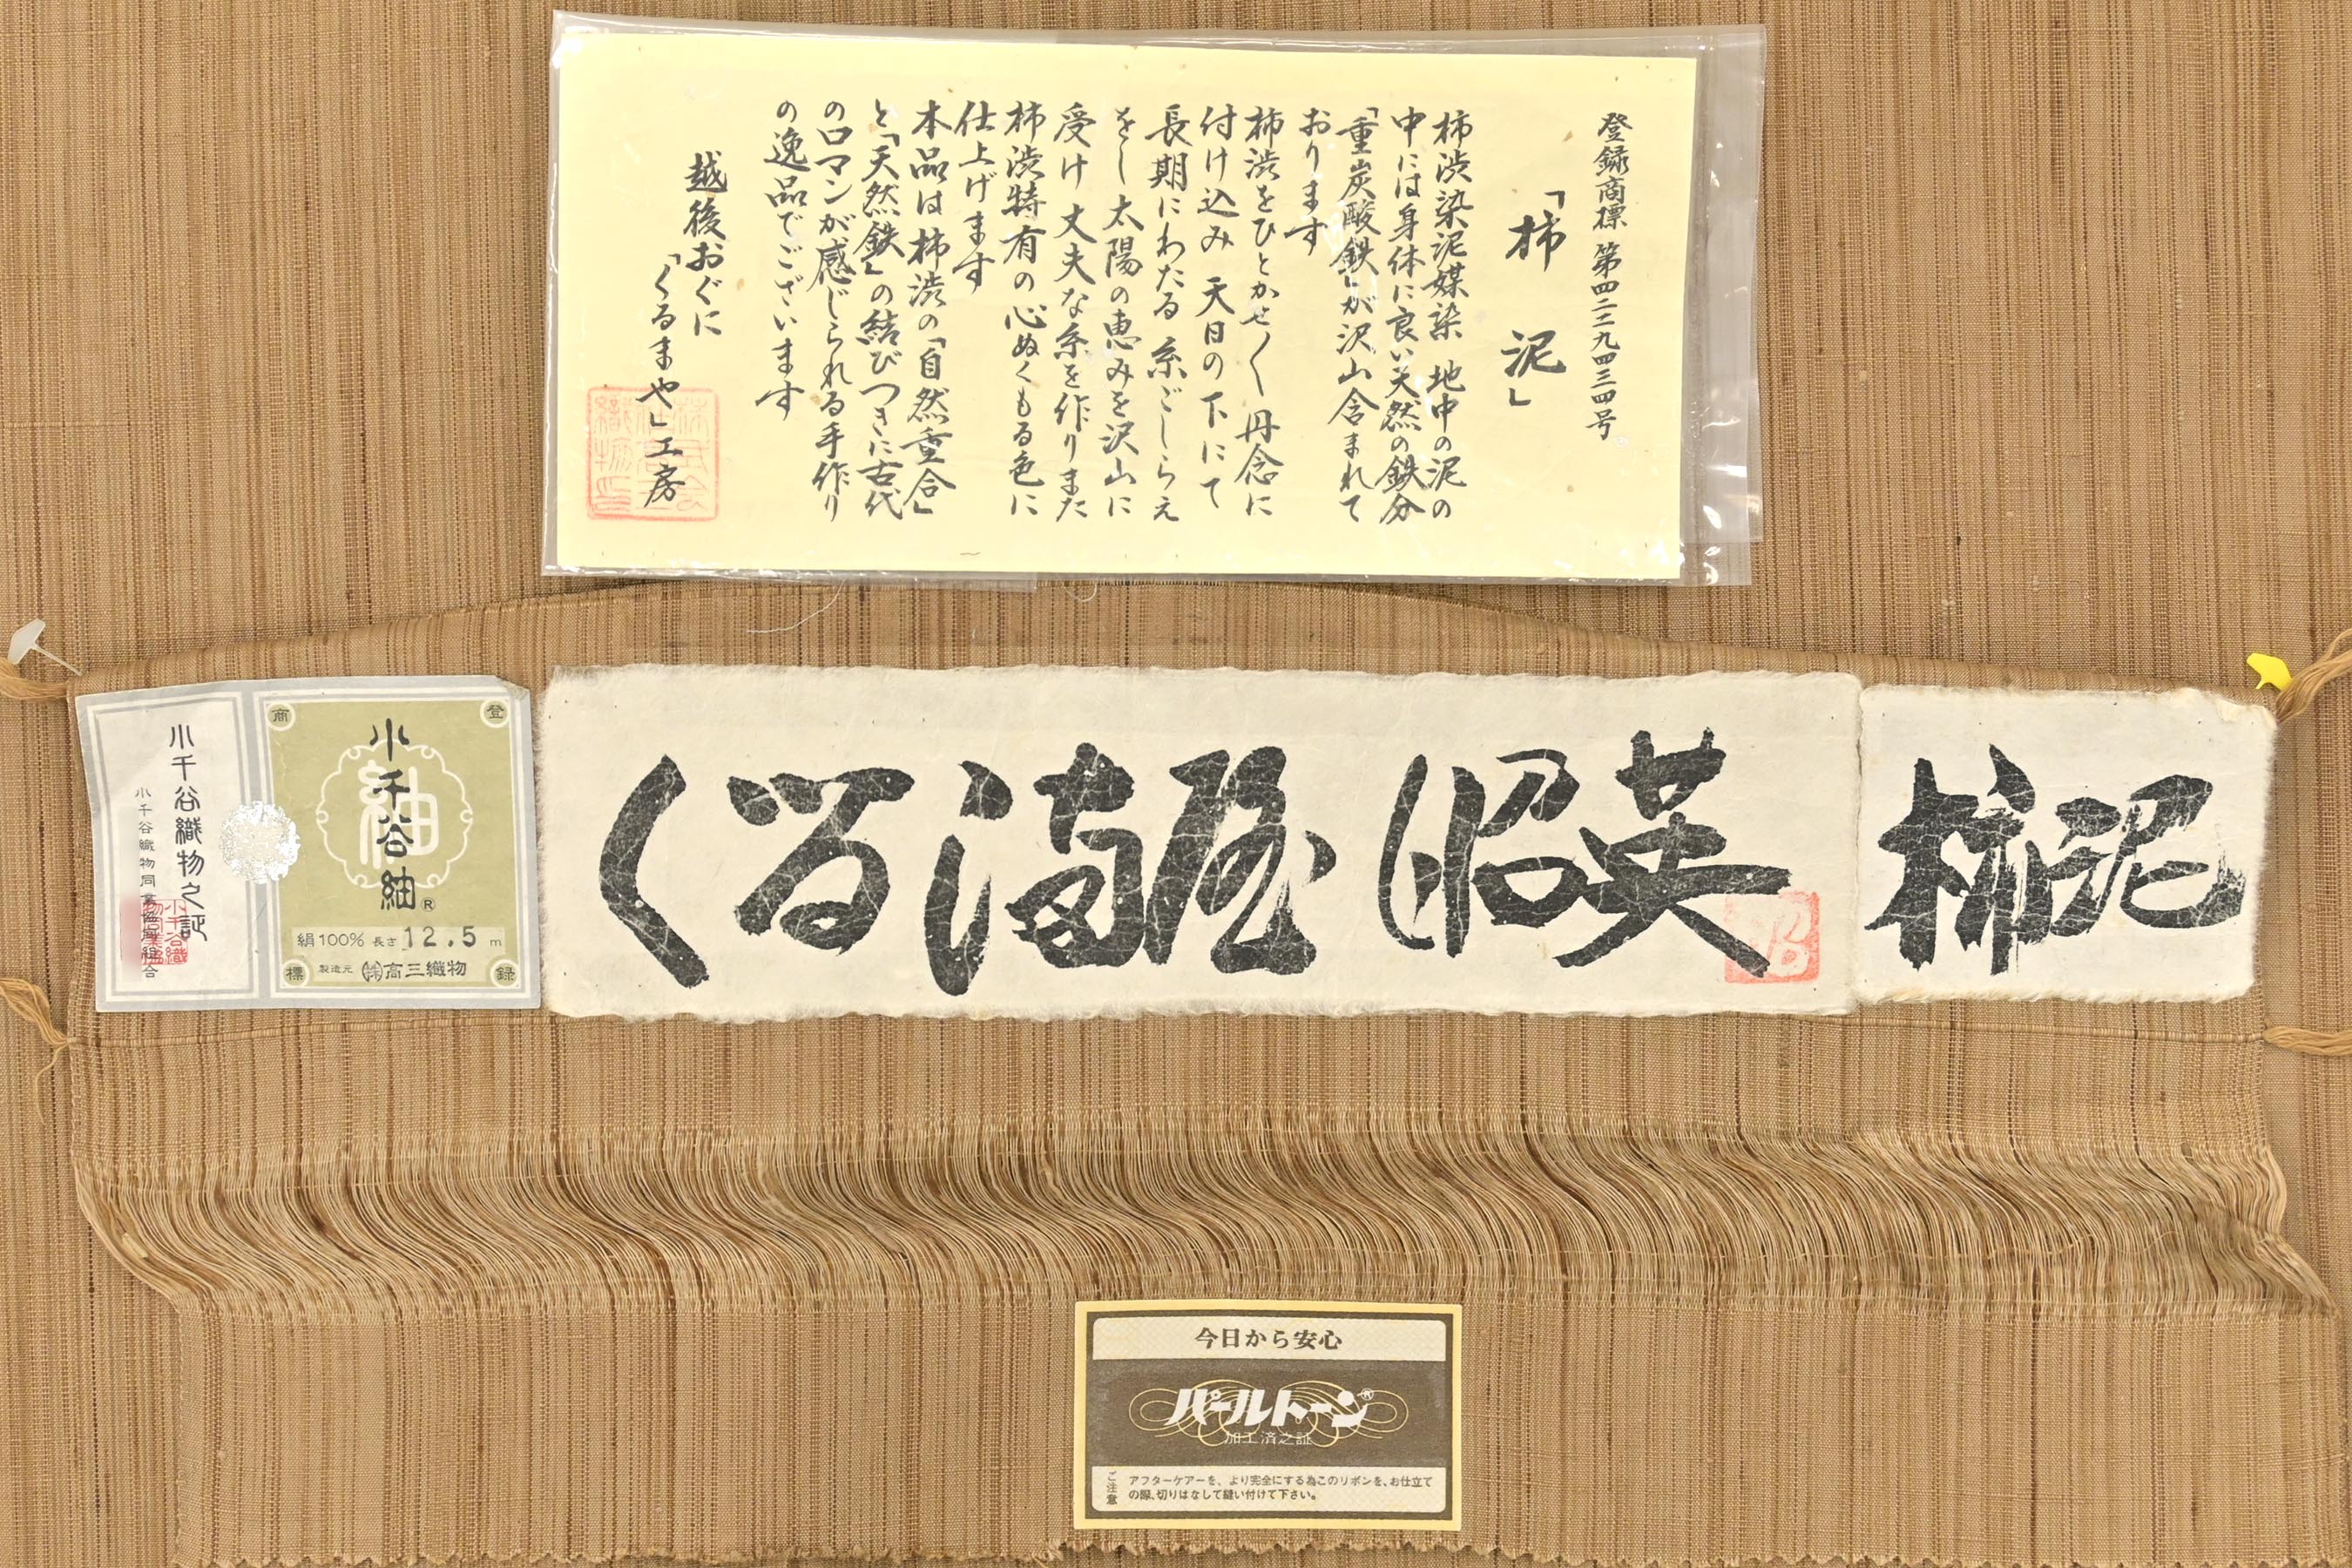 登録商標 第四二二九四三四号
「柿 泥」
柿渋染泥媒染 地中の泥の
中には身体に良い天然の鉄分
「重炭酸鉄」が沢山含まれて
おります
柿渋をひとかせ〱 丹念に
付け込み 天日の下にて
長期にわたる 糸ごしらえ
をし 太陽の恵みを沢山に
受け 丈夫な糸を作りまた
柿渋特有の心ぬくもる色に
仕上げます
本品は柿渋の「自然重合」
と「天然鉄」の結びつきに古代
のロマンが感じられる手作り
の逸品でございます
越後おぐに
「くるまや」工房
小千谷織物之証
小千谷織物同業協同組合
登録商標
紬
小千谷紬®
絹100% 長さ12.5m
製造元 ㈱高三織物
くる満屋 昭英
柿泥
今日から安心
パールトーン®
加工済之証
ご注意
アフターケアーを、より完全にする為このリボンを、お仕立て
の際、切りはなして縫い付けて下さい。